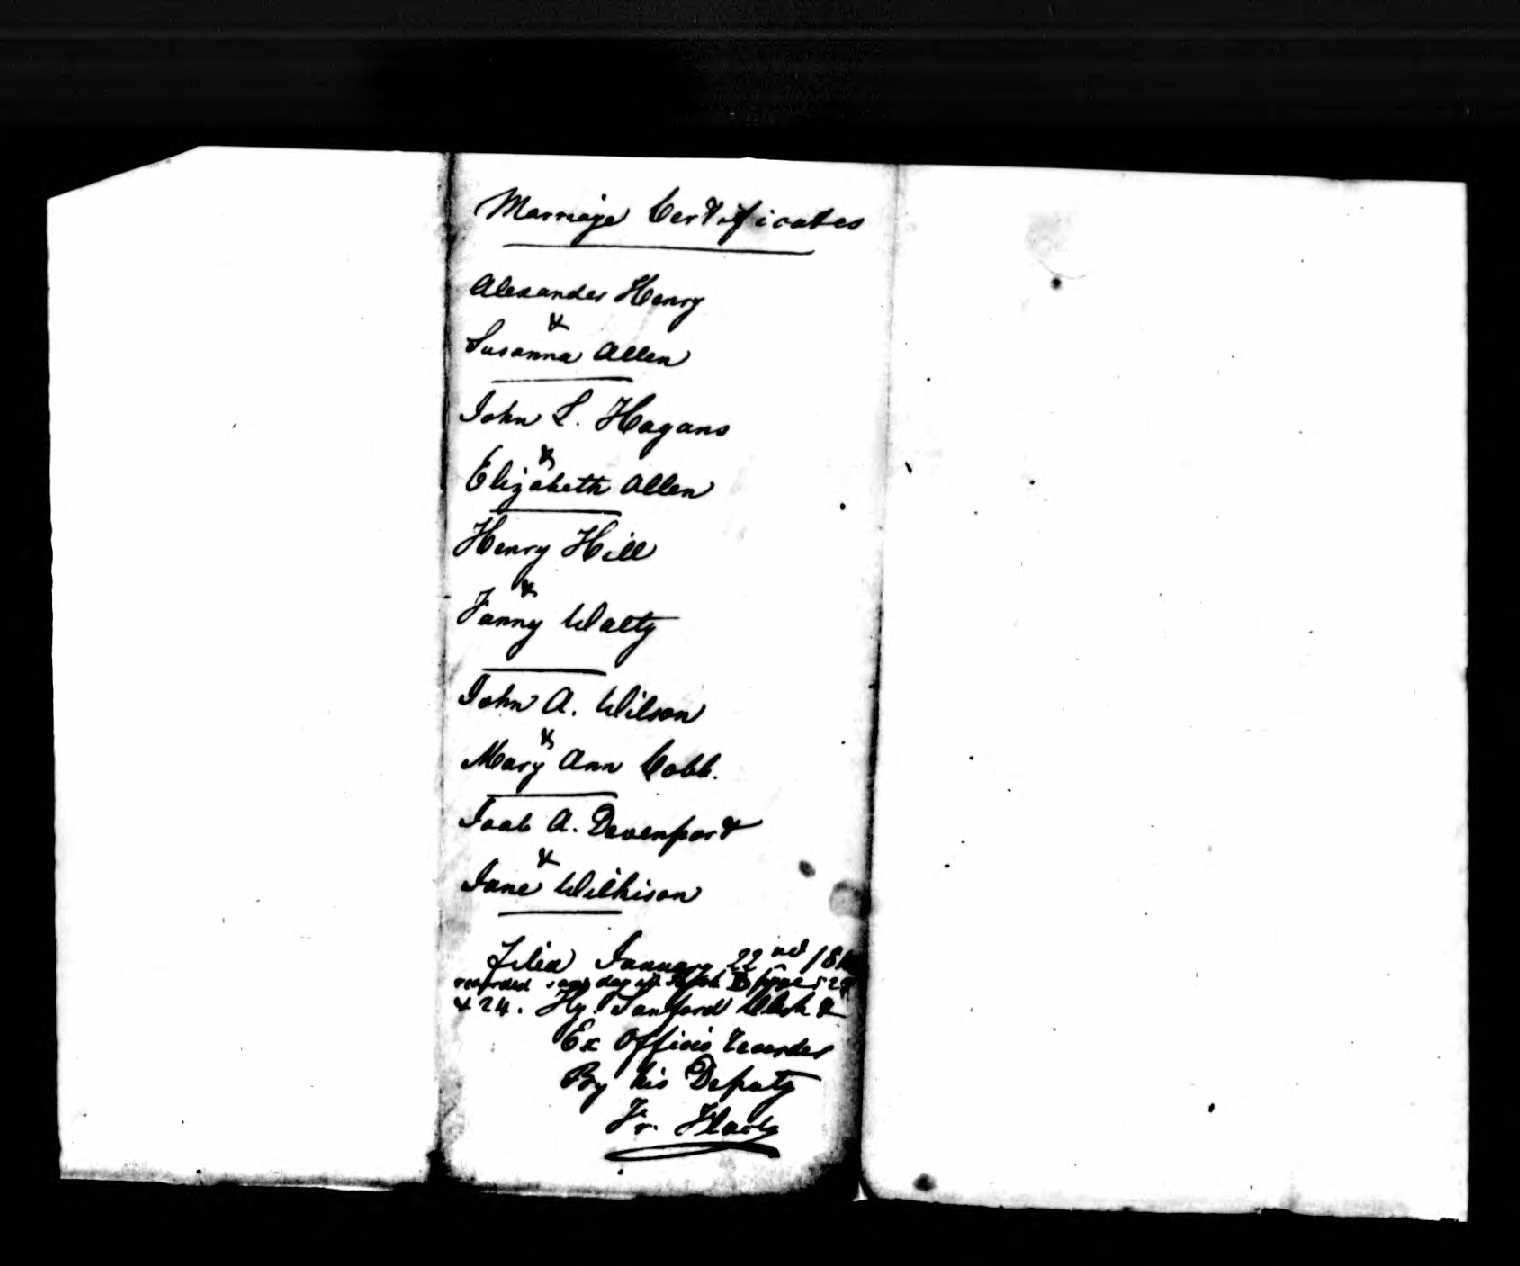 Marriage Certificates
Alexander Henry
&
Susanna Allen
John L. Hagans
&
Elizabeth Allen
Henry Hill
&
Fanny Walty
John A. Wilson
&
Mary Ann Cobb.
Joab A. Davenport
&
Jane Wilkison
Filed January 22nd
recorded same day in Book B page
& 24. Hy. Sanford Clerk &
Ex Officio Recorder
By his Deputy
Fr.